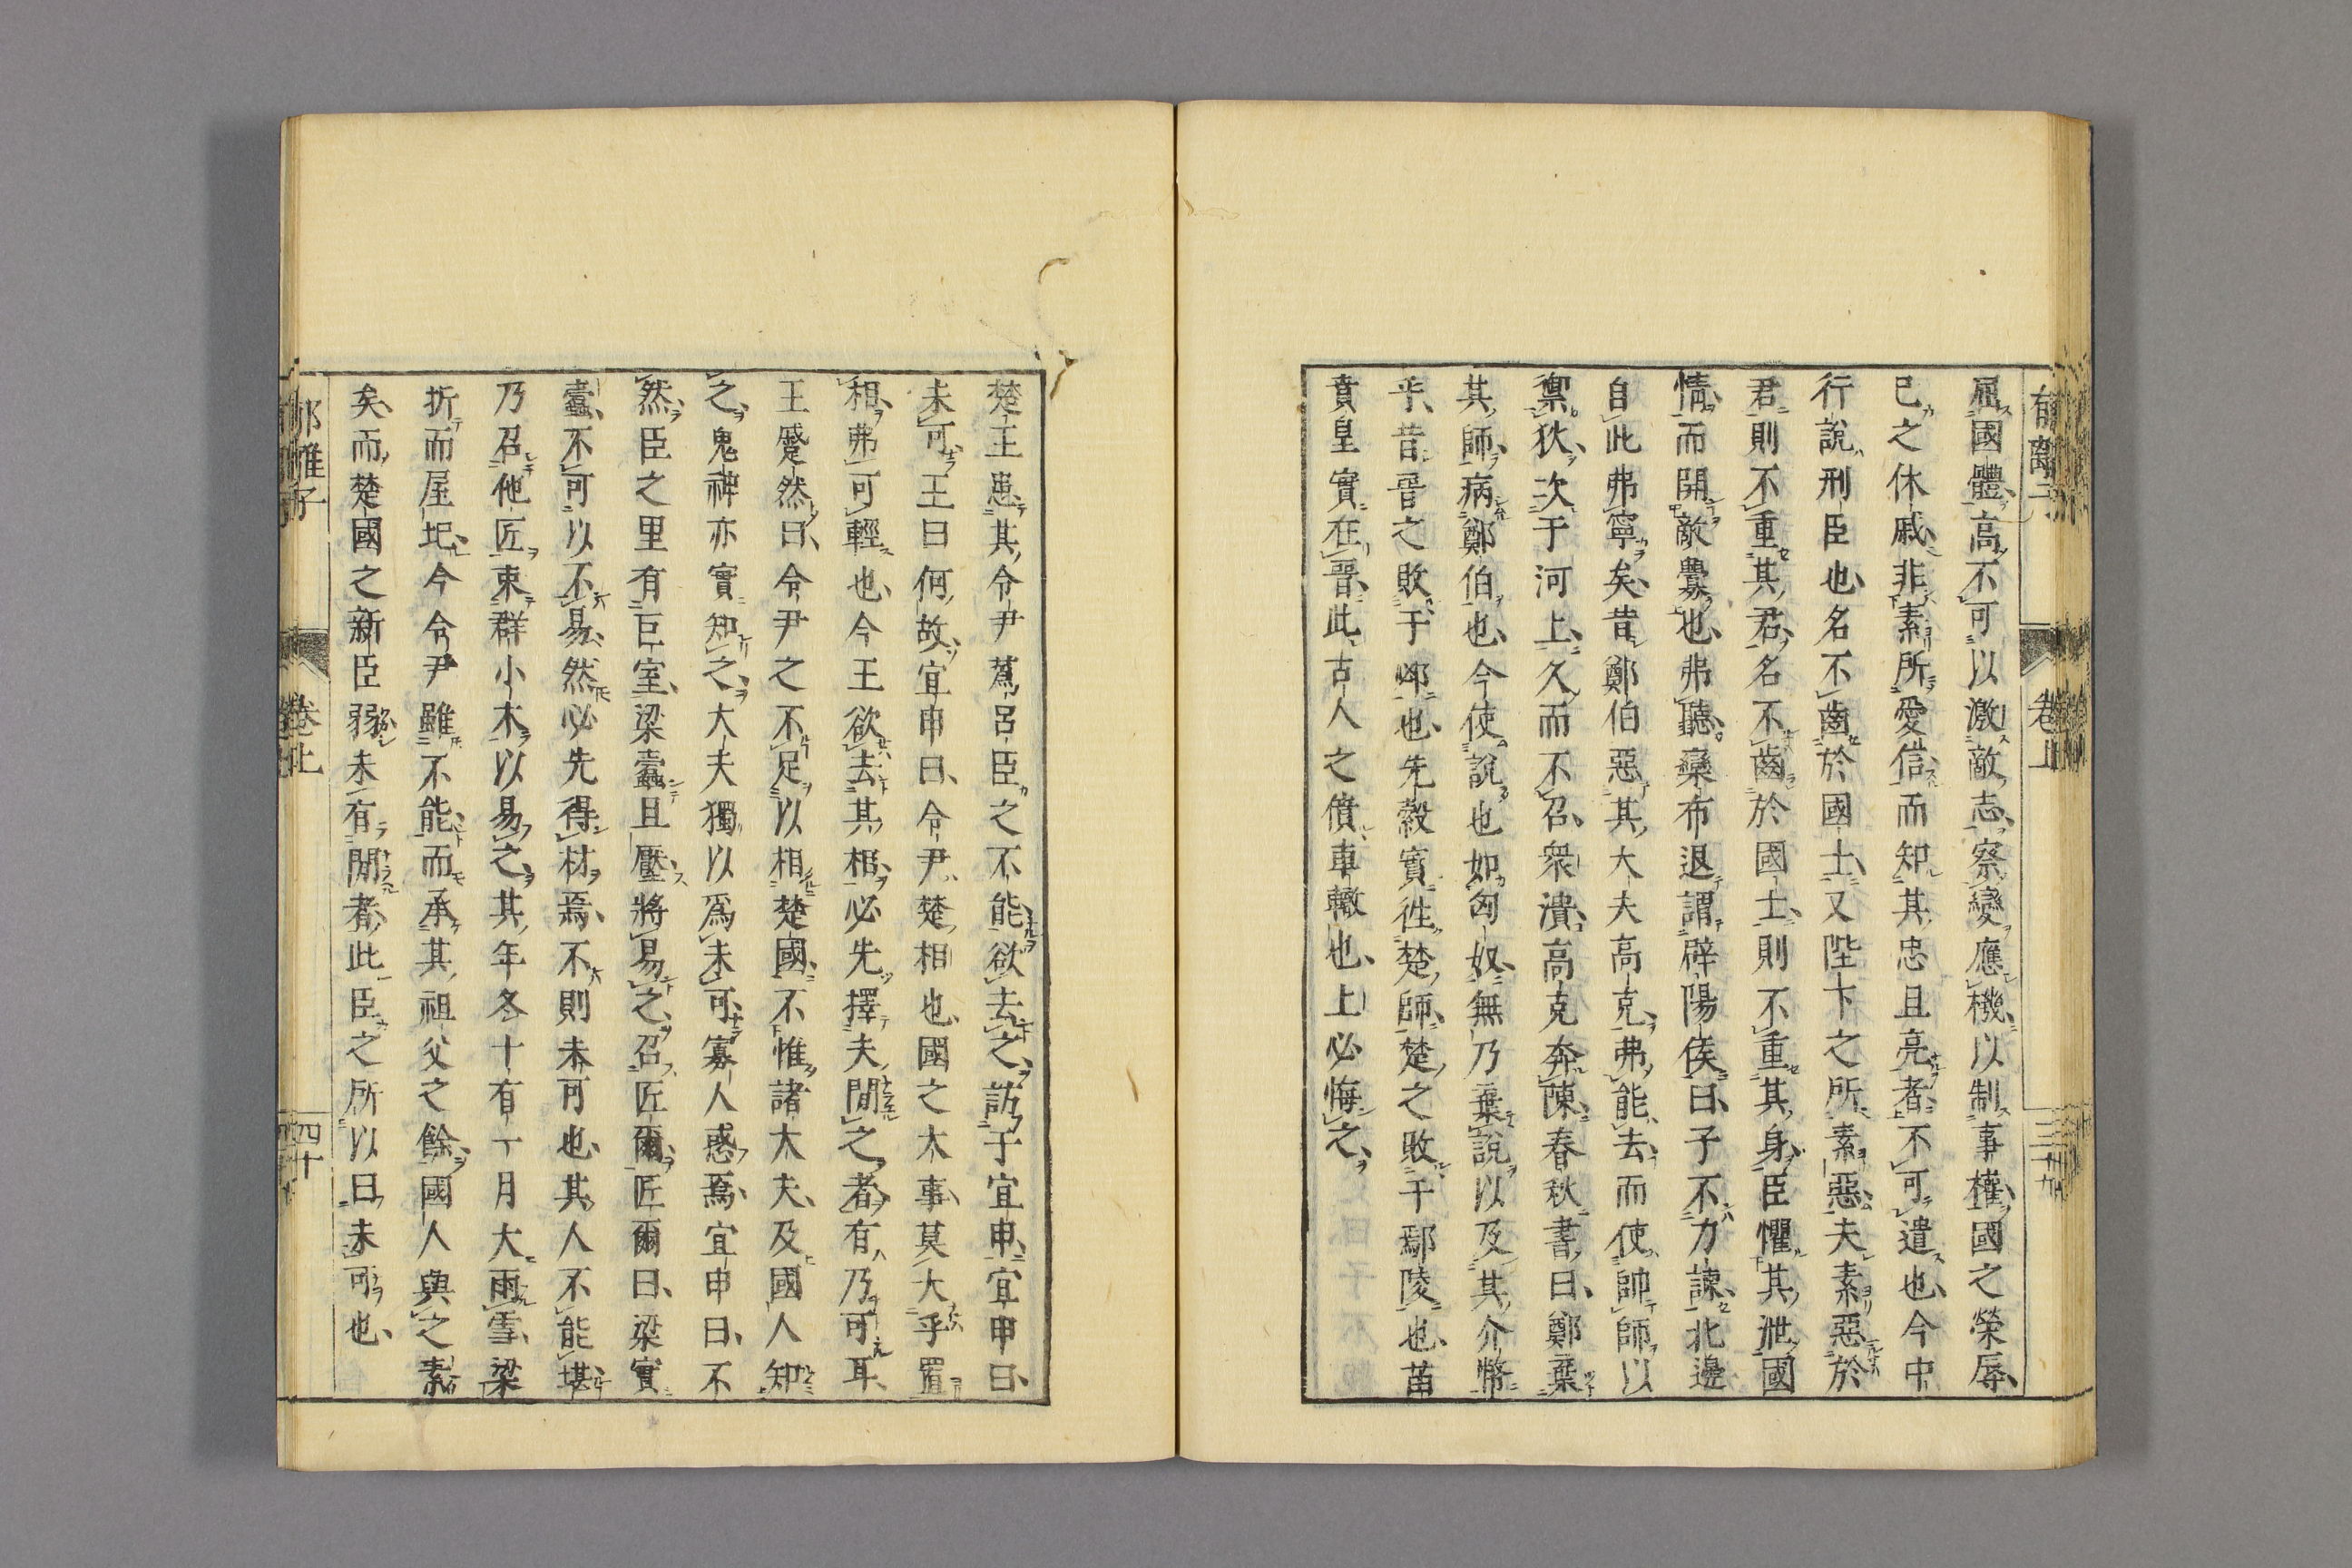 郁離子 卷上 三十九
屈國體高不可以激敵志察變應機以制事權國之榮辱
已之休戚非素所愛信而知其忠且亮者不可遣也今中
行說刑臣也名不齒於國士又陛下之所素惡夫素惡於
君則不重其君名不齒於國士則不重其身臣懼其泄國
情而開敵釁也弗聽欒布退謂辟陽侯曰子不力諫北邊
自此弗寧矣昔鄭伯惡其大夫高克弗能去而使帥師以
禦狄次于河上久而不召衆潰高克奔陳春秋書曰鄭棄
其師病鄭伯也今使說也如匈奴無乃棄說以及其介幣
乎昔晉之敗于邲也先縠實徃楚師楚之敗于鄢陵也苗
賁皇實在晉此古人之僨車轍也上必悔之
楚王患其令尹蒍呂臣之不能欲去之訪于宜申宜申曰
未可王曰何故宜申曰令尹楚相也國之大事莫大乎置
相弗可輕也今王欲去其相必先擇夫閒之者有乃可耳
王蹙然曰令尹之不足以相楚國不惟諸大夫及國人知
之鬼神亦實知之大夫獨以爲未可寡人惑焉宜申曰不
然臣之里有巨室梁蠹且壓將易之召匠爾匠爾曰梁實
蠹不可以不易然必先得材焉不則未可也其人不能堪
乃召他匠束群小木以易之其年冬十有一月大雨雪梁
折而屋圮今令尹雖不能而承其祖父之餘國人與之素
矣而楚國之新臣弱未有閒者此臣之所以曰未可也
郁離子 卷上 四十